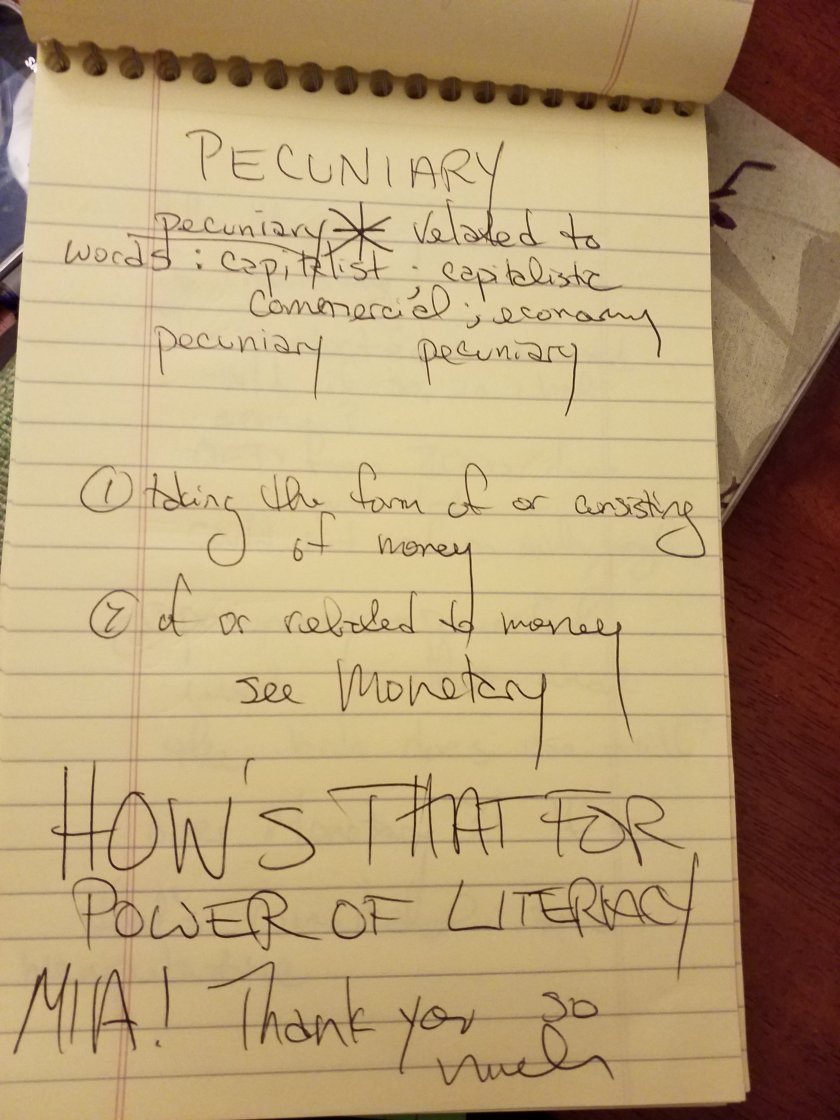 PECUNIARY
pecuniary * related to
words : capitalist ; capitalistic
commercial ; economy
pecuniary pecuniary
① taking the form of or consisting
of money
② of or related to money
see Monetary
HOW'S THAT FOR
POWER OF LITERACY
MIA! Thank you so
much